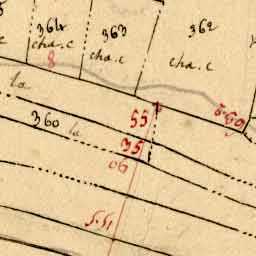 364 363 362
cha.c cha.c cha.c
8
la
360 la
55
35